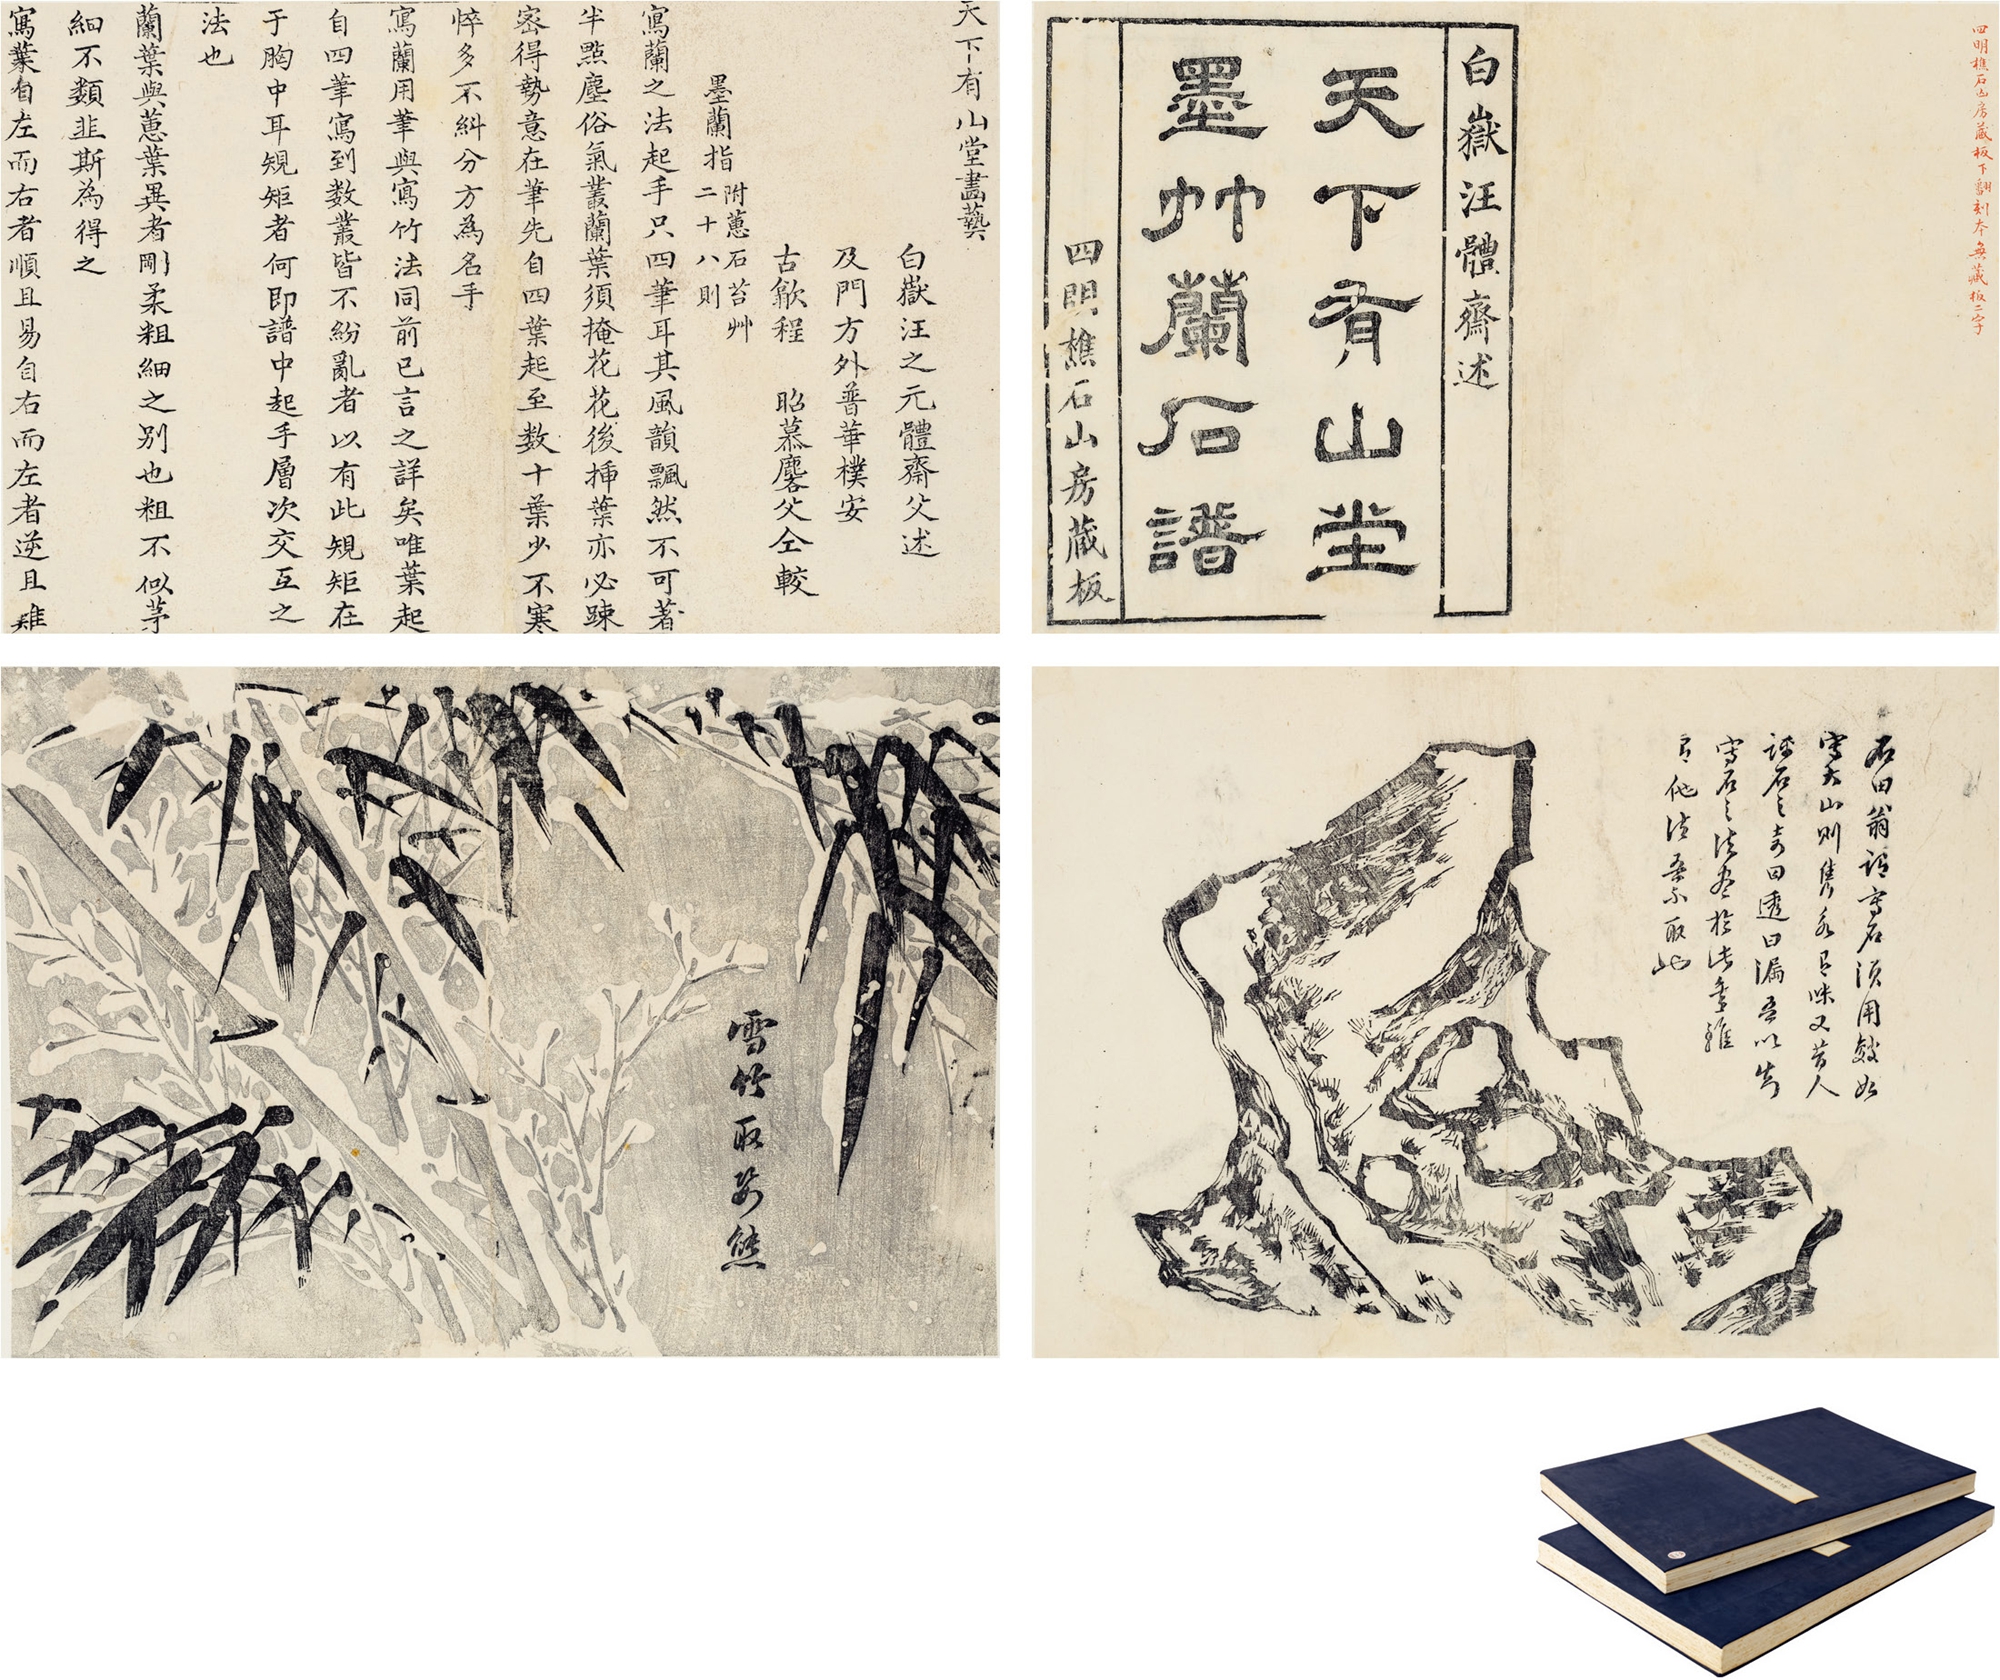 天下有山堂畫藝
白嶽汪之元體齋父述
及門方外普華樸安
古歙程　昭慕麐父仝較
墨蘭指附蕙石苔艸二十八則
寫蘭之法起手只四筆耳其風韻飄然不可著
半點塵俗氣叢蘭葉須掩花花後揷葉亦必踈
密得勢意在筆先自四葉起至数十葉少不寒
悴多不糾分方為名手
寫蘭用筆與寫竹法同前已言之詳矣唯葉起
自四筆寫到数叢皆不紛亂者以有此規矩在
于胸中耳規矩者何即譜中起手層次交互之
法也
蘭葉與蕙葉異者剛柔粗細之别也粗不似茅
細不類韭斯為得之
寫葉自左而右者順且易自右而左者逆且難
四明樵石山房藏板下翻刻本無藏板二字
白嶽汪體齋述
天下有山堂
墨竹蘭石譜
四明樵石山房藏板
雪竹取姿態
石田翁謂寫石須用皴如
寫大山則雋永有味又昔人
評石之奇曰透曰漏吾以為
寫石之法盡於此矣雖
有他法吾不取也